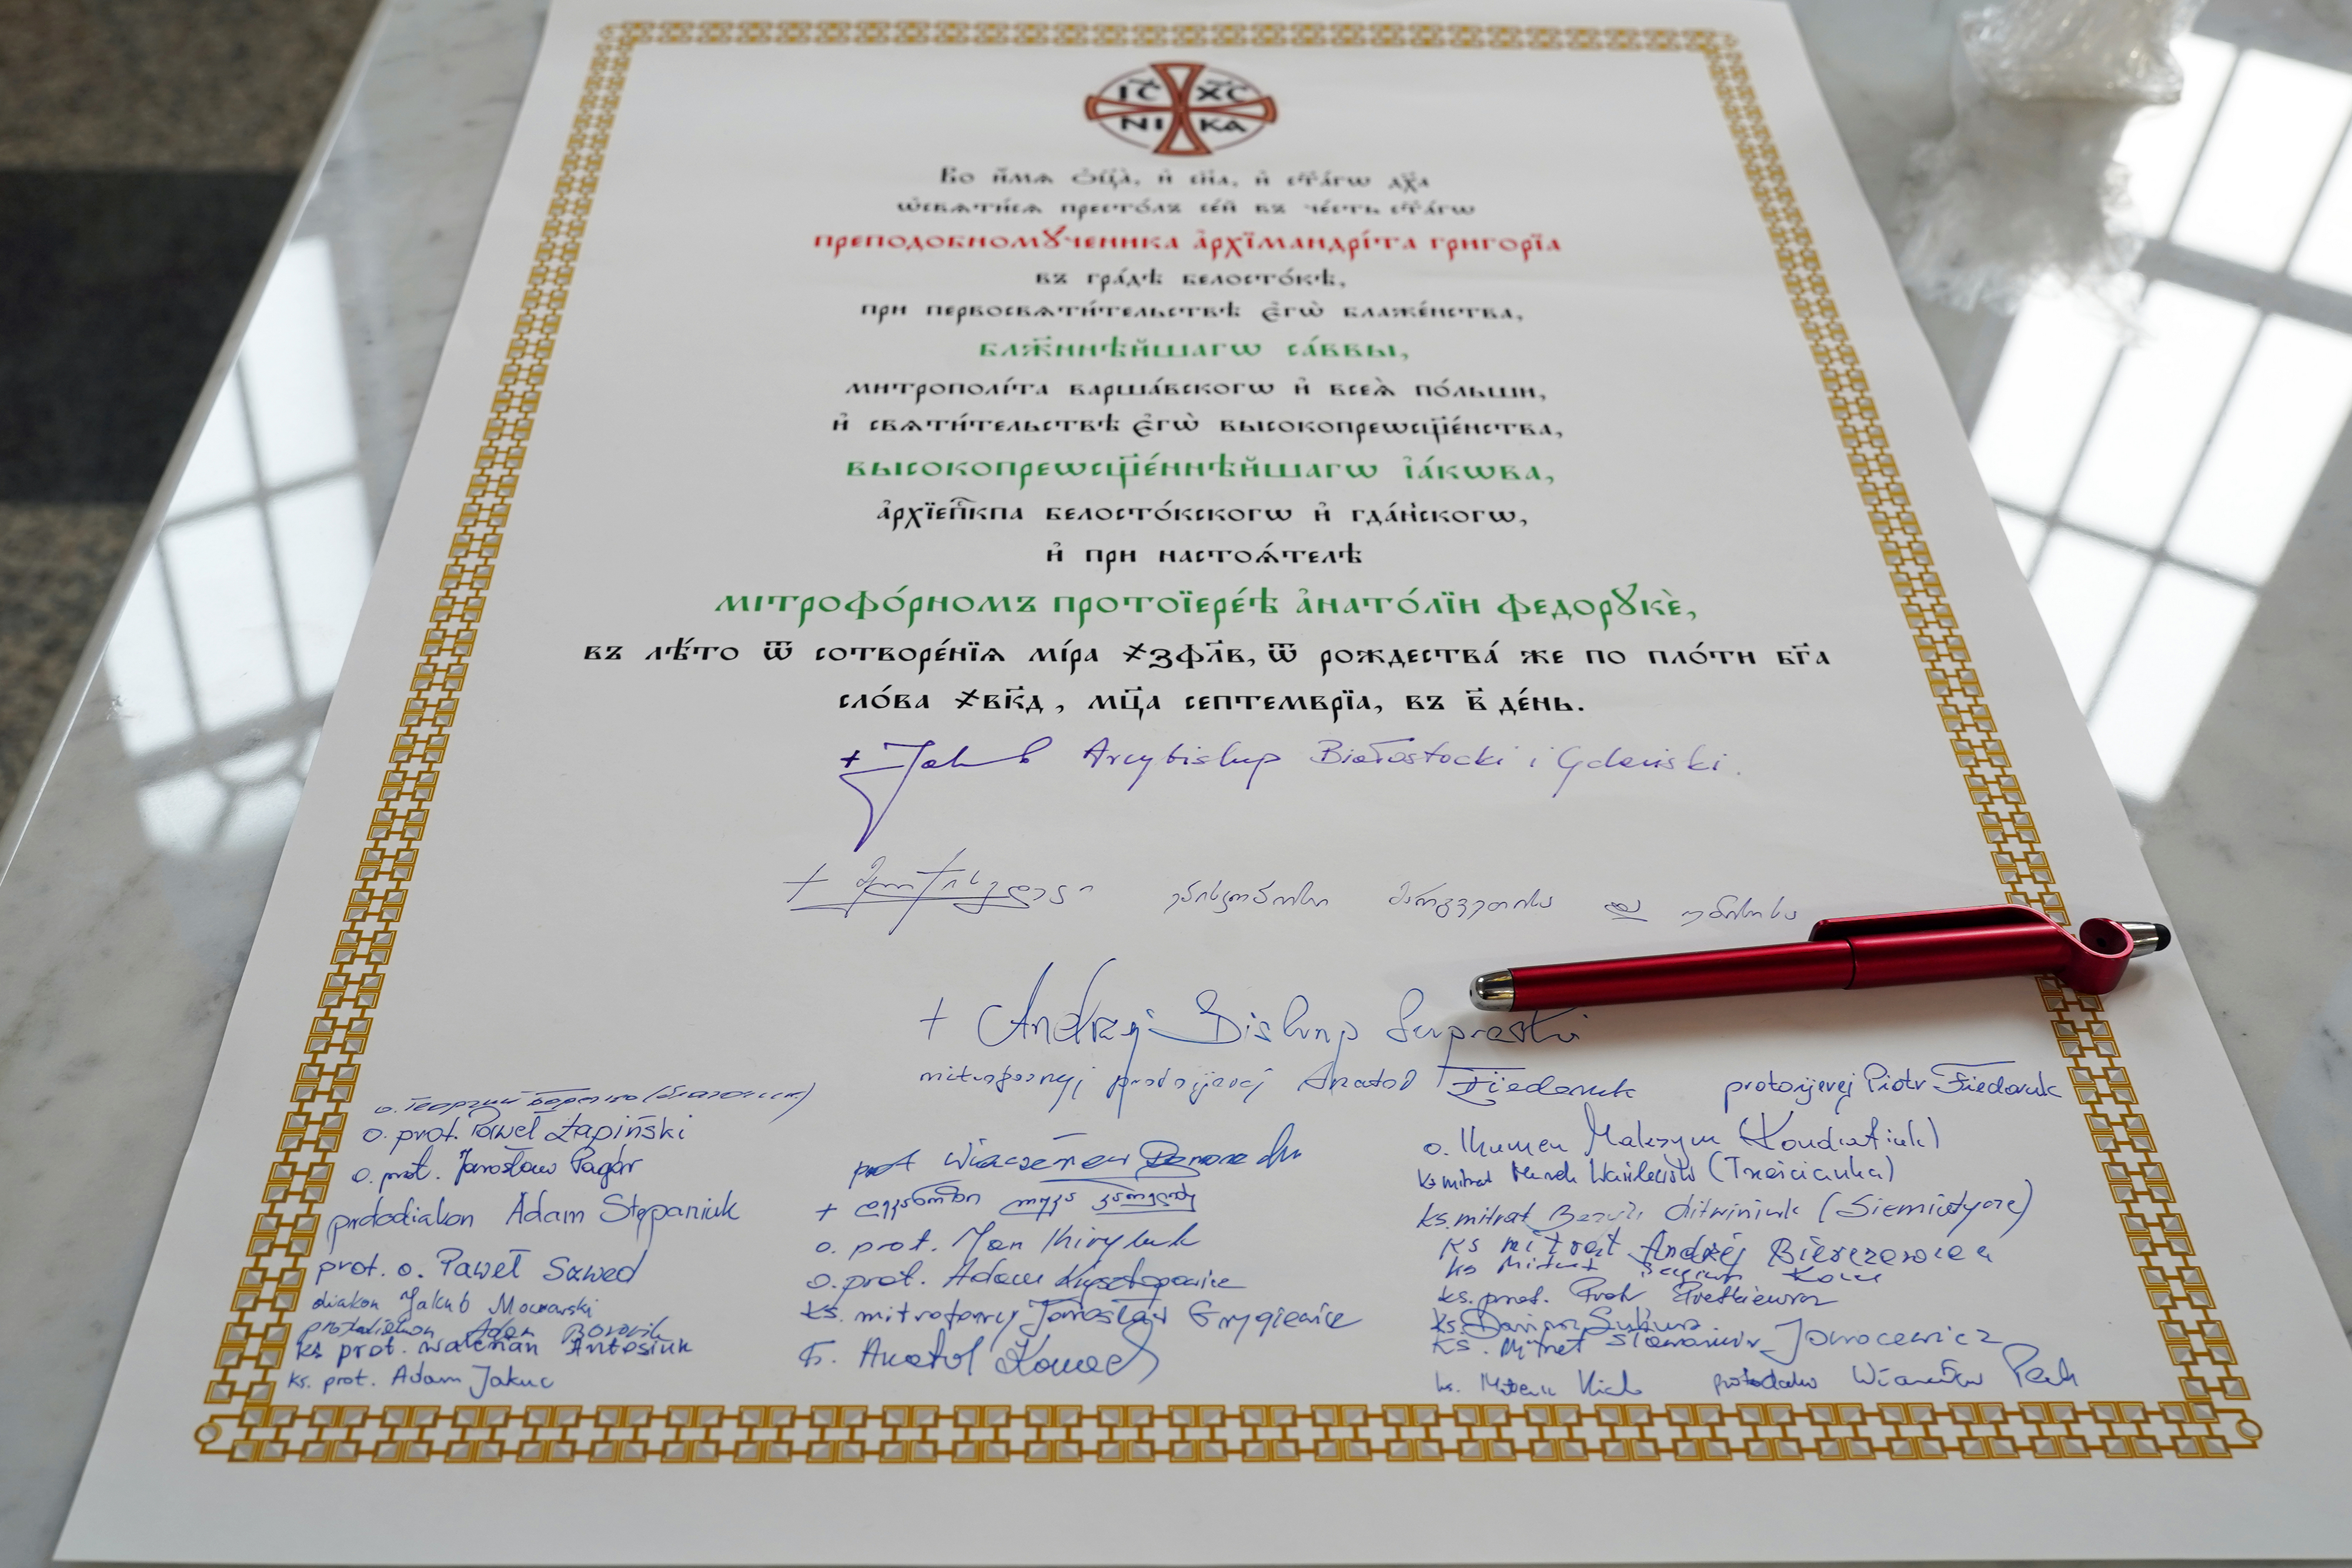 І҃С Х҃С
НІ КА
Во и҆́мѧ ѻ҆ц҃а̀, и҆ сн҃а, и҆ ст҃а́гѡ дх҃а
ѡ҆свѧти́сѧ престо́лъ се́й въ че́сть ст҃а́гѡ
преподобномꙋ́ченика а҆рхїмандрі́та григорїа
въ гра́дѣ белосто́кѣ,
при первосвѧти́тельствѣ є҆гѡ̀ блаже́нства,
блж҃ннѣ́йшагѡ са́ввы,
митрополі́та варша́вскогѡ и҆ всеѧ̀ по́льши,
и҆ свѧти́тельствѣ є҆гѡ̀ высокопреѡсщ҃е́нства,
высокопреѡсщ҃е́ннѣйшагѡ і҆а́кѡва,
а҆рхїеп҃кпа белосто́кскогѡ и҆ гда́нскогѡ,
и҆ при настоѧ́телѣ
мітрофо́рномъ протоїере́ѣ а҆нато́лїи федорꙋкѐ,
въ лѣ́то ѿ сотворе́нїѧ мі́ра ҂зфл҃в, ѿ рождества́ же по пло́ти бг҃а
сло́ва ҂вк҃д, мц҃а септемврїа, въ в҃ де́нь.
+ Jakub Arcybiskup Białostocki i Gdański.
+ ეპისკოპოსი მარგვეთისა და უბისისა
+ Andrzej Biskup Supraski
mitrofornyj protojerej Anatol Fiedoruk
protojerej Piotr Fiedoruk
о. Георгий
o. prot. Paweł Łapiński
o. prot. Jarosław Pagór
protodiakon Adam Stepaniuk
prot. o. Paweł Szwed
diakon Jakub Moczarski
protodiakon Adam
ks prot. Walerian Antosiuk
ks. prot. Adam Jakuc
prot Wiaczesław
+ დეკანოზი ლუკა
o. prot. Jan Kiryluk
o. prot. Adam
ks. mitroforny Jarosław Grygiewicz
Anatol
o. Ihumen Maksym (Kondratiuk)
ks mitrat Marek Wasilewski (Trześcianka)
ks. mitrat Bazyli Litwiniuk (Siemiatycze)
ks mitrat Andrzej
ks mitrat
ks. prot. Piotr
ks.
ks. Mitrat Sławomir Jarocewicz
ks.
protodiakon Wiaczesław